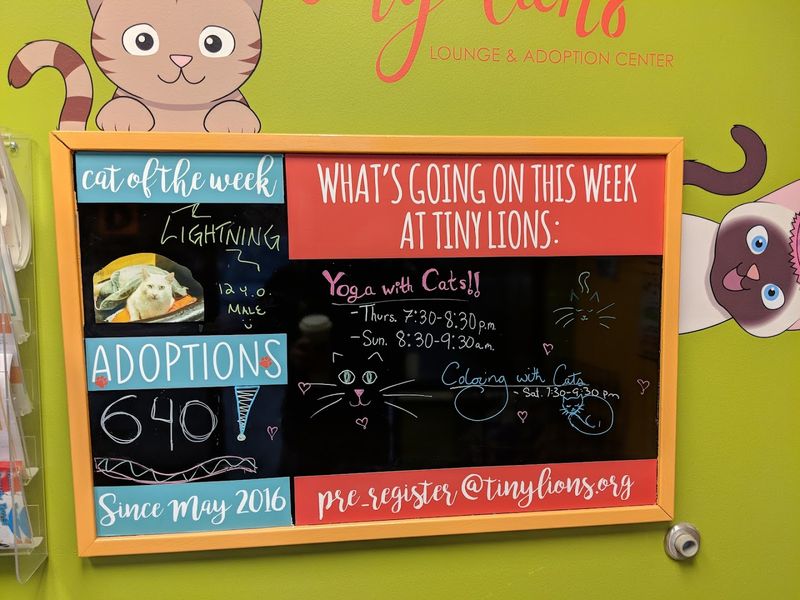 Tiny Lions
LOUNGE & ADOPTION CENTER
cat of the week
LIGHTNING
12 Y.O.
MALE
ADOPTIONS
640!
Since May 2016
WHAT'S GOING ON THIS WEEK
AT TINY LIONS:
Yoga with Cats!!
- Thurs. 7:30-8:30 p.m
- Sun. 8:30-9:30 a.m
Coloring with Cats
- Sat. 7:30-9:30 pm
pre-register @tinylions.org